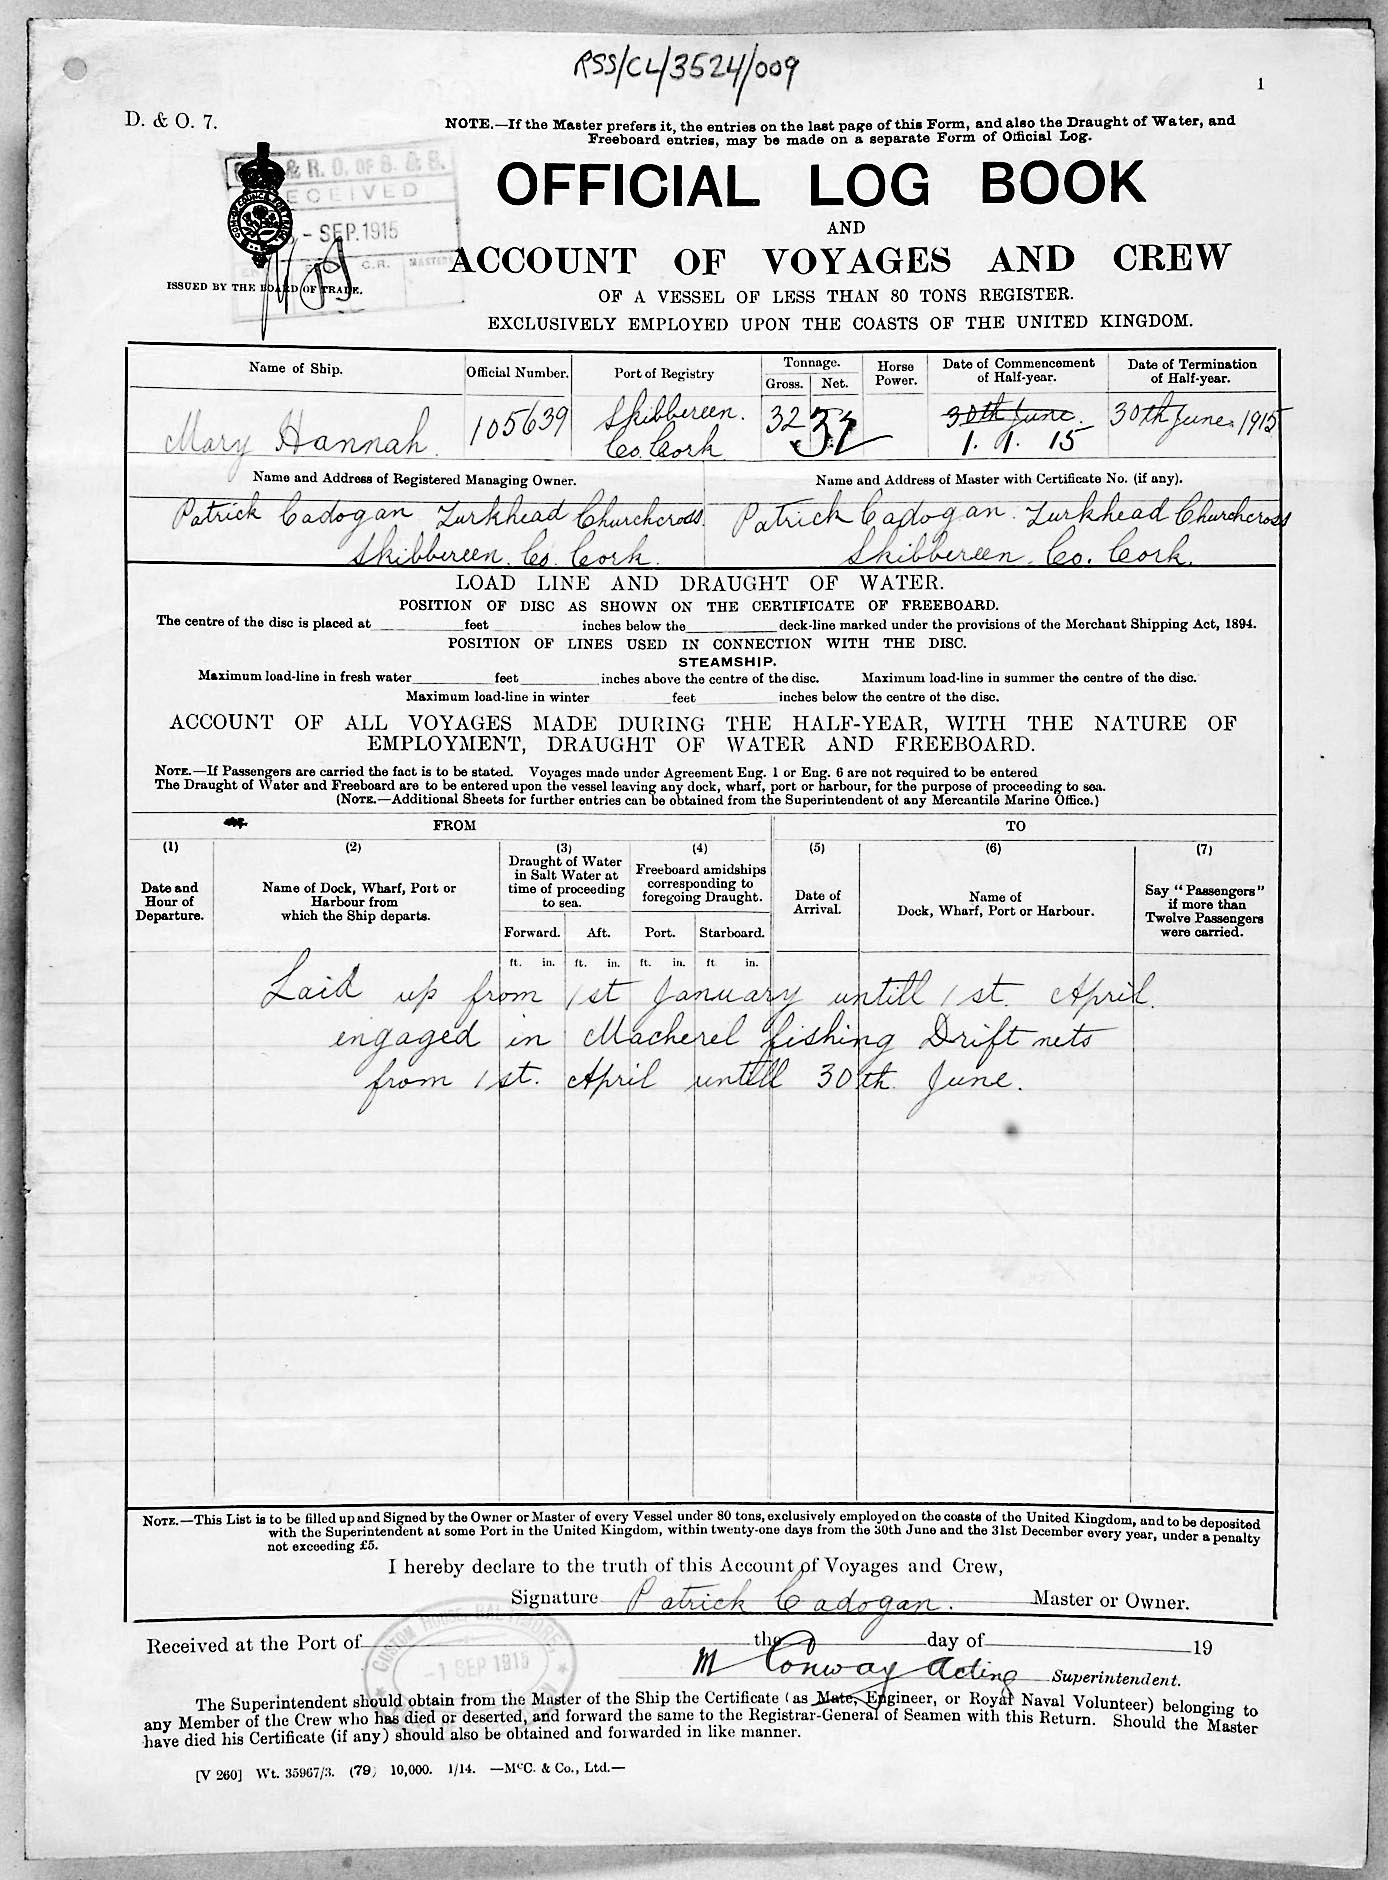 RSS/CL/3524/009
1
D. & O. 7.
NOTE.—If the Master prefers it, the entries on the last page of this Form, and also the Draught of Water, and
Freeboard entries, may be made on a separate Form of Official Log.
& R. O. OF S. & S.
RECEIVED
- SEP. 1915
C.R. MASTERS
ISSUED BY THE BOARD OF TRADE.
OFFICIAL LOG BOOK
AND
ACCOUNT OF VOYAGES AND CREW
OF A VESSEL OF LESS THAN 80 TONS REGISTER.
EXCLUSIVELY EMPLOYED UPON THE COASTS OF THE UNITED KINGDOM.
Name of Ship. Official Number. Port of Registry Tonnage. Gross. Net. Horse Power. Date of Commencement of Half-year. Date of Termination of Half-year.
Mary Hannah. 105639 Skibbereen. Co. Cork 32 32 30th June. 1. 1. 15 30th June 1915
Name and Address of Registered Managing Owner. Name and Address of Master with Certificate No. (if any).
Patrick Cadogan Turkhead Churchcross Patrick Cadogan. Turkhead Churchcross
Skibbereen. Co. Cork. Skibbereen. Co. Cork.
LOAD LINE AND DRAUGHT OF WATER.
POSITION OF DISC AS SHOWN ON THE CERTIFICATE OF FREEBOARD.
The centre of the disc is placed at feet inches below the deck-line marked under the provisions of the Merchant Shipping Act, 1894.
POSITION OF LINES USED IN CONNECTION WITH THE DISC.
STEAMSHIP.
Maximum load-line in fresh water feet inches above the centre of the disc. Maximum load-line in summer the centre of the disc.
Maximum load-line in winter feet inches below the centre of the disc.
ACCOUNT OF ALL VOYAGES MADE DURING THE HALF-YEAR, WITH THE NATURE OF
EMPLOYMENT, DRAUGHT OF WATER AND FREEBOARD.
NOTE.—If Passengers are carried the fact is to be stated. Voyages made under Agreement Eng. 1 or Eng. 6 are not required to be entered
The Draught of Water and Freeboard are to be entered upon the vessel leaving any dock, wharf, port or harbour, for the purpose of proceeding to sea.
(NOTE.—Additional Sheets for further entries can be obtained from the Superintendent of any Mercantile Marine Office.)
FROM TO
(1) (2) (3) (4) (5) (6) (7)
Date and Hour of Departure.
Name of Dock, Wharf, Port or Harbour from which the Ship departs.
Draught of Water in Salt Water at time of proceeding to sea.
Freeboard amidships corresponding to foregoing Draught.
Date of Arrival.
Name of Dock, Wharf, Port or Harbour.
Say "Passengers" if more than Twelve Passengers were carried.
Forward. Aft. Port. Starboard.
ft. in. ft. in. ft. in. ft in.
Laid up from 1st January untill 1st. April.
engaged in Macherel fishing Drift nets
from 1st. April untill 30th June.
NOTE.—This List is to be filled up and Signed by the Owner or Master of every Vessel under 80 tons, exclusively employed on the coasts of the United Kingdom, and to be deposited
with the Superintendent at some Port in the United Kingdom, within twenty-one days from the 30th June and the 31st December every year, under a penalty
not exceeding £5.
I hereby declare to the truth of this Account of Voyages and Crew,
Signature Patrick Cadogan. Master or Owner.
Received at the Port of the day of 19
CUSTOM HOUSE, BALTIMORE
-1 SEP 1915
M Conway Acting Superintendent.
The Superintendent should obtain from the Master of the Ship the Certificate (as Mate, Engineer, or Royal Naval Volunteer) belonging to
any Member of the Crew who has died or deserted, and forward the same to the Registrar-General of Seamen with this Return. Should the Master
have died his Certificate (if any) should also be obtained and forwarded in like manner.
[V 260] Wt. 35967/3. (79) 10,000. 1/14. —McC. & Co., Ltd.—